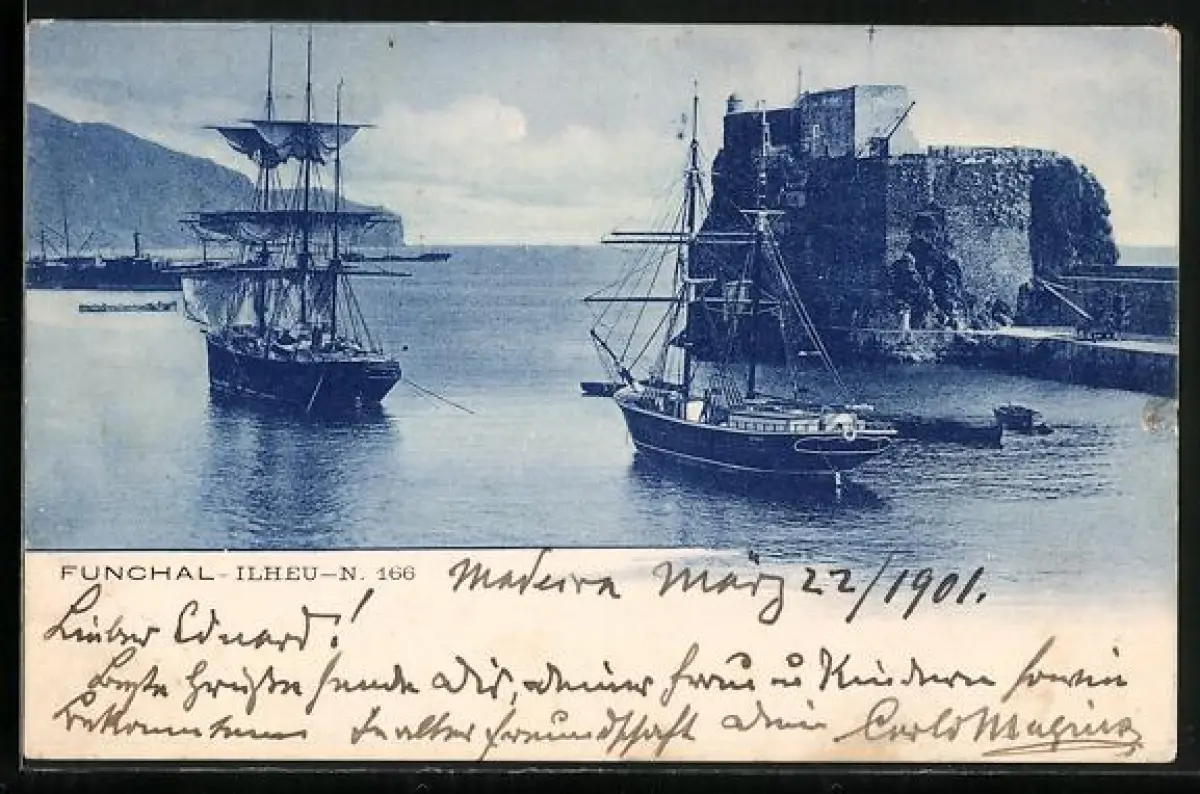 FUNCHAL - ILHEU - N. 166
Madeira März 22/1901.
Lieber Eduard!
Beste Grüße sende Dir, deiner Frau u Kindern sowie
Bekannten In alter Freundschaft Dein Carlo